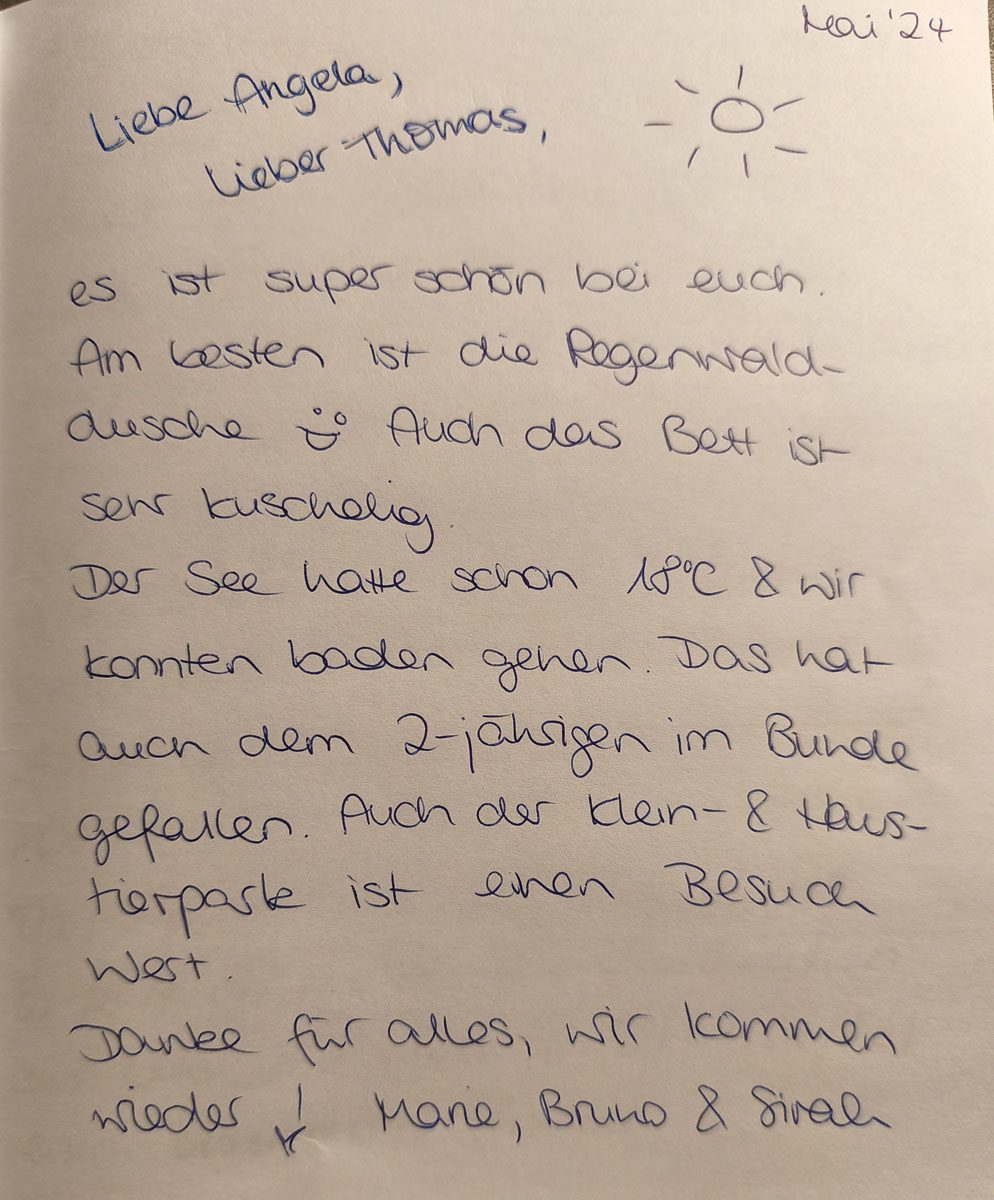 Mai '24
Liebe Angela,
Lieber Thomas,
es ist super schön bei euch.
Am besten ist die Regenwald-
dusche Auch das Bett ist
sehr kuschelig.
Der See hatte schon 18°C & wir
konnten baden gehen. Das hat
auch dem 2-jährigen im Bunde
gefallen. Auch der Klein- & Haus-
tierpark ist einen Besuch
Wert.
Danke für alles, wir kommen
wieder! Marie, Bruno &